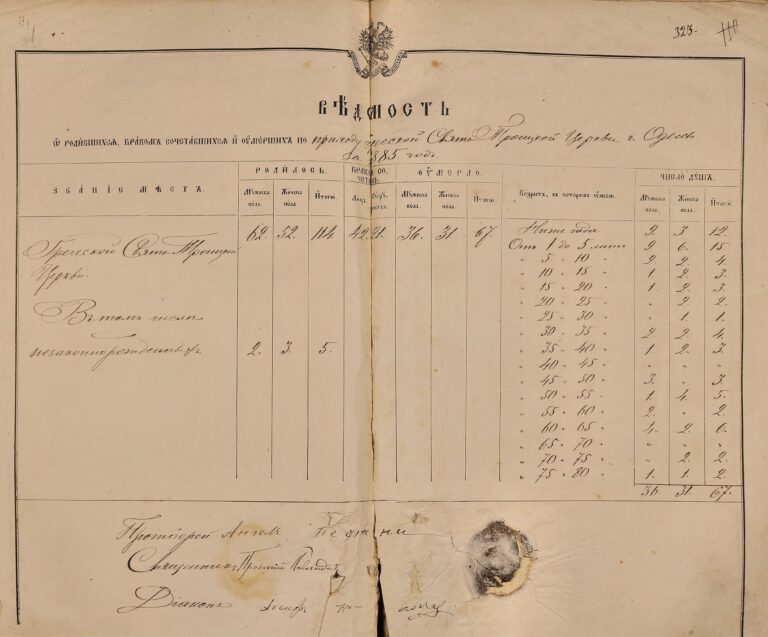 323.
ВѢДОМОСТЬ
Ѡ РОДИВШИХСЯ, БРАКОМЪ СОЧЕТАВШИХСЯ И ОУМЕРШИХЪ ПО приходу Греческой Свято Троицкой Церкви г. Одессы
За 1885 годъ
ЗВАНІЕ МѢСТЪ. РОДИЛОСЬ. БРАКОМЪ СОЧЕТАЛ. ОУМЕРЛО. Возрастъ, въ которомъ оумерли. ЧИСЛО ДУШЪ.
Мужеска пола. Женска пола. Итого Мужеска пола. Женска пола. Итого. Мужеска пола. Женска пола. Итого.
Греческой Свято Троицкой 62. 52. 114 42. 21. 36. 31. 67. Ниже года 9. 3. 12.
Церкви. Отъ 1 до 5 лѣтъ 9. 6. 15.
" 5 " 10 " 2. 2. 4.
" 10 " 15 " 1. 2. 3.
" 15 " 20 " 1. 2. 3.
Въ томъ числѣ " 20 " 25 " " 2. 2.
" 25 " 30 " " 1. 1.
" 30 " 35 " 2. 2. 4.
незаконнорожденныхъ 2. 3. 5. " 35 " 40 " 1. 2. 3.
" 40 " 45 " " " "
" 45 " 50 " 3. " 3.
" 50 " 55 " 1. 4. 5.
" 55 " 60 " 2. " 2.
" 60 " 65 " 4. 2. 6.
" 65 " 70 " " " "
" 70 " 75 " " 2. 2.
" 75 " 80 " 1. 1. 2.
36. 31. 67.
Протоіерей Ангелъ
Священникъ
Діаконъ